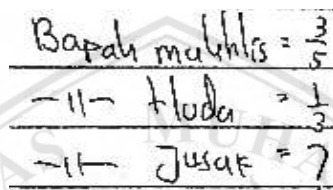 Bapak mukhlis = 3/5
-11- Huda = 1/3
-11- Jusak = ?